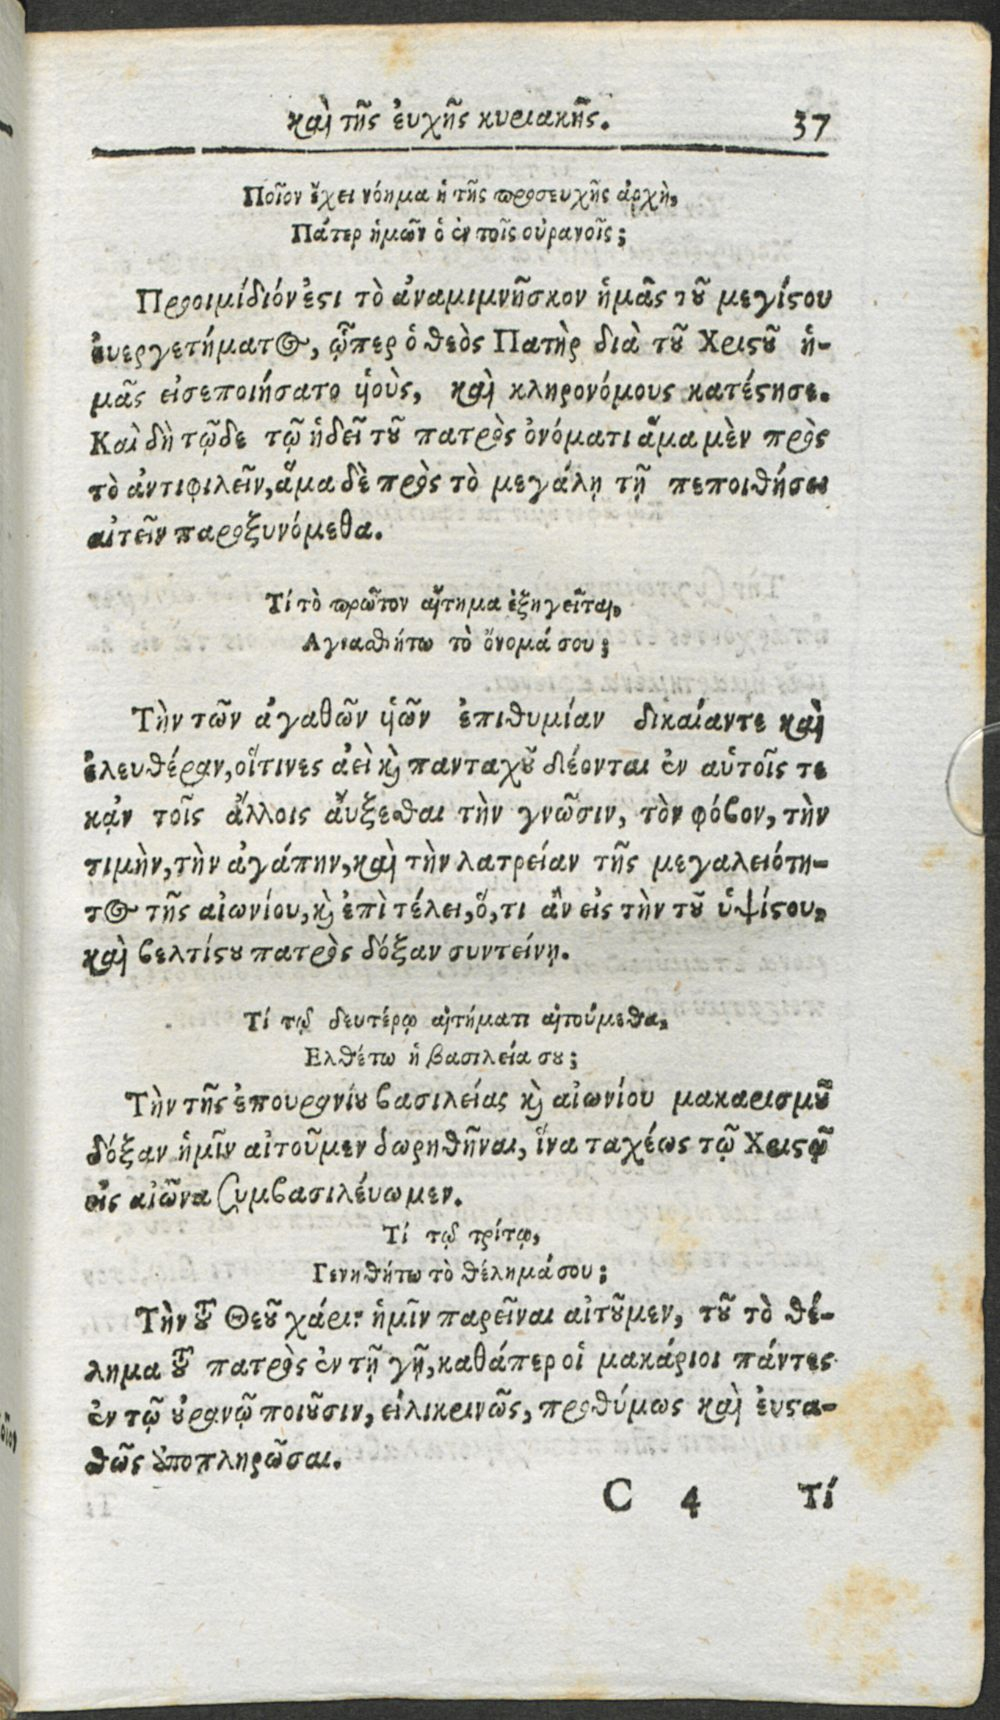 καὶ τῆς ἐυχῆς κυριακῆς. 37
Ποῖον ἔχει νόημα ἡ τῆς προσευχῆς ἀρχὴ,
Πάτερ ἡμῶν ὁ ἐν τοῖς οὐρανοῖς;
Προοιμίδιόν ἐστι τὸ ἀναμιμνῆσκον ἡμᾶς τοῦ μεγίστου
ἐυεργετήματος, ᾧπερ ὁ θεὸς Πατὴρ διὰ τοῦ Χριστοῦ ἡ-
μᾶς εἰσεποιήσατο ὑιοὺς, καὶ κληρονόμους κατέστησε.
Καὶ δὴ τῷδε τῷ ἡδεῖ τοῦ πατρὸς ὀνόματι ἅμα μὲν πρὸς
τὸ ἀντιφιλεῖν, ἅμα δὲ πρὸς τὸ μεγάλῃ τῇ πεποιθήσει
αἰτεῖν παροξυνόμεθα.
Τί τὸ πρῶτον αἴτημα ἐξηγεῖται,
Αγιασθήτω τὸ ὄνομά σου;
Τὴν τῶν ἀγαθῶν ὑιῶν ἐπιθυμίαν δικαίαν τε καὶ
ἐλευθέραν, οἵτινες ἀεὶ καὶ πανταχοῦ δέονται ἐν αὑτοῖς τε
κᾀν τοῖς ἄλλοις ἄυξεσθαι τὴν γνῶσιν, τὸν φόβον, τὴν
τιμὴν, τὴν ἀγάπην, καὶ τὴν λατρείαν τῆς μεγαλειότη-
τος τῆς αἰωνίου, καὶ ἐπὶ τέλει, ὅ, τι ἂν εἰς τὴν τοῦ ὑψίστου,
καὶ βελτίστου πατρὸς δόξαν συντείνῃ.
Τί τῷ δευτέρῳ αἰτήματι αἰτούμεθα,
Ελθέτω ἡ βασιλεία σου;
Τὴν τῆς ἐπουρανίου βασιλείας καὶ αἰωνίου μακαρισμοῦ
δόξαν ἡμῖν αἰτοῦμεν δωρηθῆναι, ἵνα ταχέως τῷ Χριστῷ
εἰς αἰῶνα συμβασιλέυωμεν.
Τί τῷ τρίτῳ,
Γενηθήτω τὸ θέλημά σου;
Τὴν τοῦ Θεοῦ χάριν ἡμῖν παρεῖναι αἰτοῦμεν, τοῦ τὸ θέ-
λημα τοῦ πατρὸς ἐν τῇ γῇ, καθάπερ οἱ μακάριοι πάντες
ἐν τῷ οὐρανῷ ποιοῦσιν, εἰλικρινῶς, προθύμως καὶ ἐυστα-
θῶς ὑποπληρῶσαι.
C 4 Τί